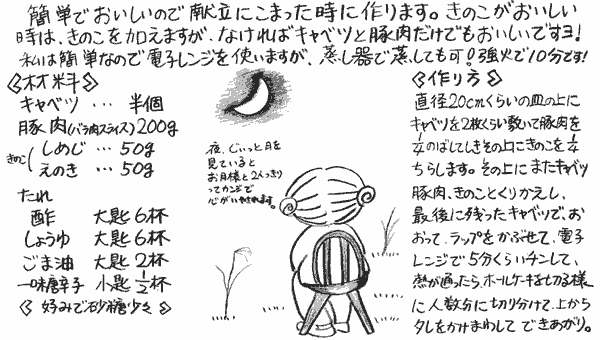 簡単でおいしいので献立にこまった時に作ります。きのこがおいしい
時は、きのこを加えますが、なければキャベツと豚肉だけでもおいしいですヨ!
私は簡単なので電子レンジを使いますが、蒸し器で蒸しても可!強火で10分です!
《材料》
キャベツ … 半個
豚肉(バラ肉スライス)200g
きのこ
しめじ … 50g
えのき … 50g
たれ
酢 大匙6杯
しょうゆ 大匙6杯
ごま油 大匙2杯
一味唐辛子 小匙½杯
《 好みで砂糖少々 》
夜、じぃっと月を
見ていると
お月様と2人っきり
ってカンジで
心がいやされます。
《作り方》
直径20cmくらいの皿の上に
キャベツを2枚くらい敷いて豚肉を
のばしてしきその上にきのこを
ちらします。その上にまたキャベツ
豚肉、きのことくりかえし、
最後に残ったキャベツで、お
おって、ラップをかぶせて、電子
レンジで5分くらいチンして、
熱が通ったら、ホールケーキを切る様
に人数分に切り分けて、上から
タレをかけまわしてできあがり。